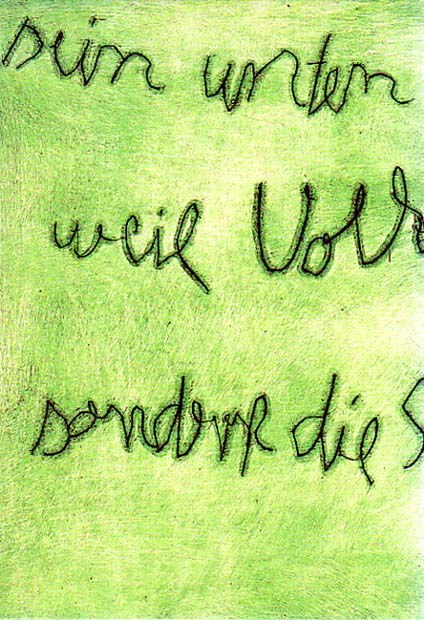 sein unten
weil Volk
sondern die S